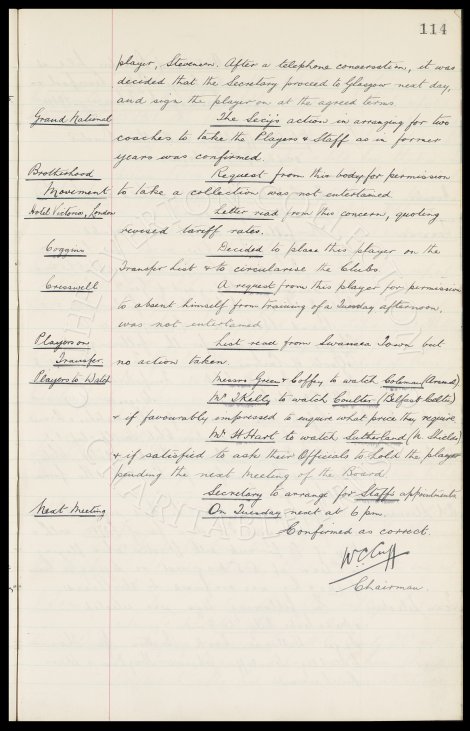 114
player, Stevenson. After a telephone conversation, it was
decided that the Secretary proceed to Glasgow next day,
and sign the player on at the agreed terms.
Grand National The Secy's action in arranging for two
coaches to take the Players & Staff as in former
years was confirmed
Brotherhood Request from this body for permission
Movement to take a collection was not entertained
Hotel Victoria, London Letter read from this concern, quoting
revised tariff rates.
Coggins Decided to place this player on the
Transfer List & to circularise the Clubs.
Cresswell A request from this player for permission
to absent himself from training of a Tuesday afternoon,
was not entertained
Players on List read from Swansea Town but
Transfer. no action taken.
Players to Watch Messrs Green & Coffey to watch Coleman (Arsenal)
Mr Kelly to watch Coulter (Belfast Celtic)
& if favourably impressed to enquire what price they require
Mr H Hart to watch Sutherland (N. Shields)
& if satisfied to ask their Officials to hold the player
pending the next Meeting of the Board
Secretary to arrange for Staff's appointments
Next Meeting On Tuesday next at 6 pm.
Confirmed as correct.
W C Cuff
Chairman.